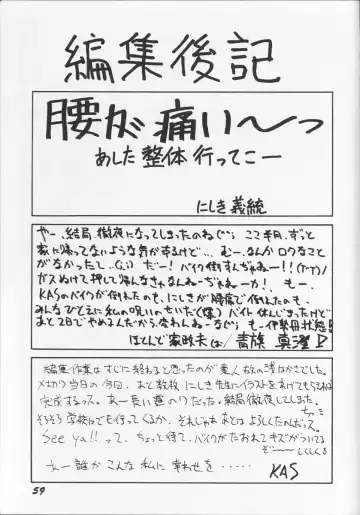 編集後記
腰が痛い～っ
あした整体行ってこー
にしき義統
やー、結局、徹夜になってしまったのね(^^; ここ半月、ずっと
家に帰ってないような気がするけど…。むー、なんかロクなこと
がなかったし…(;;) だー！バイク倒すんぢゃねー!!(TT)
ガスぬけて押して帰んなきゃなんねーぢゃねーか！もー、
KASのバイクが倒れたのも、にしきが腰痛で倒れたのも
みんなひとえに私の呪いのせいだ(爆) バイト休んじまったけど
あと2日でやめるんだから変わんねーな(^^; もー伊勢丹状態!
ほとんど家政夫(は) 青族 真澄
編集作業はすぐに終わると思ったのが素人故の浅はかさでした。
〆切り当日の今回、あと数枚にしき先生にイラストをあげてもらえれば
完成するっス。あー長い道のりだった。結局徹夜してしまった。
そろそろ学校にでも行ってくるか。それじゃあ あとはよろしくたのんだっス。
See ya!! って、ちょっと待て、バイクがたおれてキズがついてる
ぞーしくしく
えー誰か こんな私に幸わせを・・・・・
KAS
59